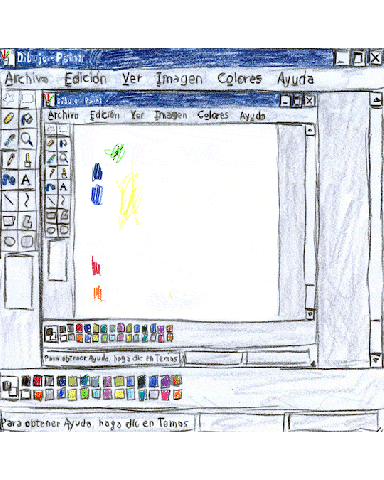 Dibujo - Paint
Archivo Edición Ver Imagen Colores Ayuda
Dibujo - Paint
Archivo Edición Ver Imagen Colores Ayuda
A
A
Para obtener Ayuda, haga clic en Temas
Para obtener Ayuda, haga clic en Temas